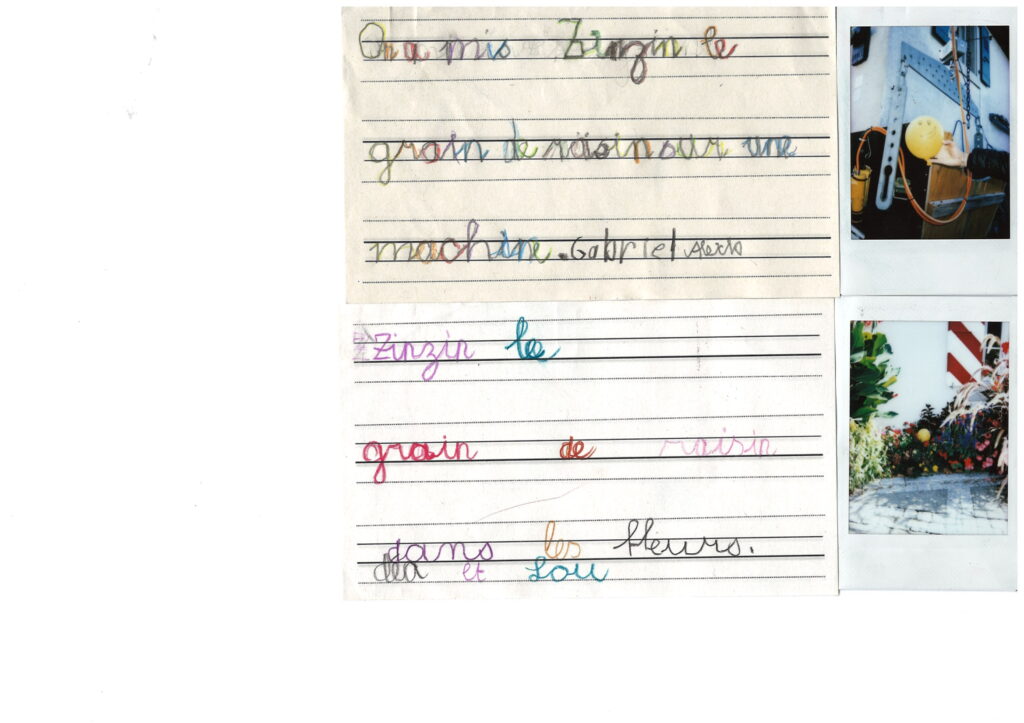 On a mis Zinzin le
grain de raisin sur une
machine. Gabriel Alexis
Zinzin le
grain de raisin
dans les fleurs.
et Lou